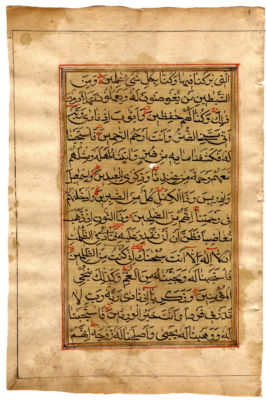 التى بركنا فيها وكنا بكل شىء علمين ومن
الشيطين من يغوصون له ويعملون عملا دون
ذلك وكنا لهم حفظين وايوب اذ نادى ربه
انى مسنى الضر وانت ارحم الرحمين فاستجبنا
له فكشفنا ما به من ضر واتينه اهله ومثلهم
معهم رحمة من عندنا وذكرى للعبدين واسمعيل
وادريس وذا الكفل كل من الصبرين وادخلنهم
فى رحمتنا انهم من الصلحين وذا النون اذ ذهب
مغاضبا فظن ان لن نقدر عليه فنادى فى الظلمت
ان لا اله الا انت سبحنك انى كنت من الظلمين
فاستجبنا له ونجينه من الغم وكذلك ننجى
المؤمنين وزكريا اذ نادى ربه رب لا
تذرنى فردا وانت خير الورثين فاستجبنا
له ووهبنا له يحيى واصلحنا له زوجه انهم